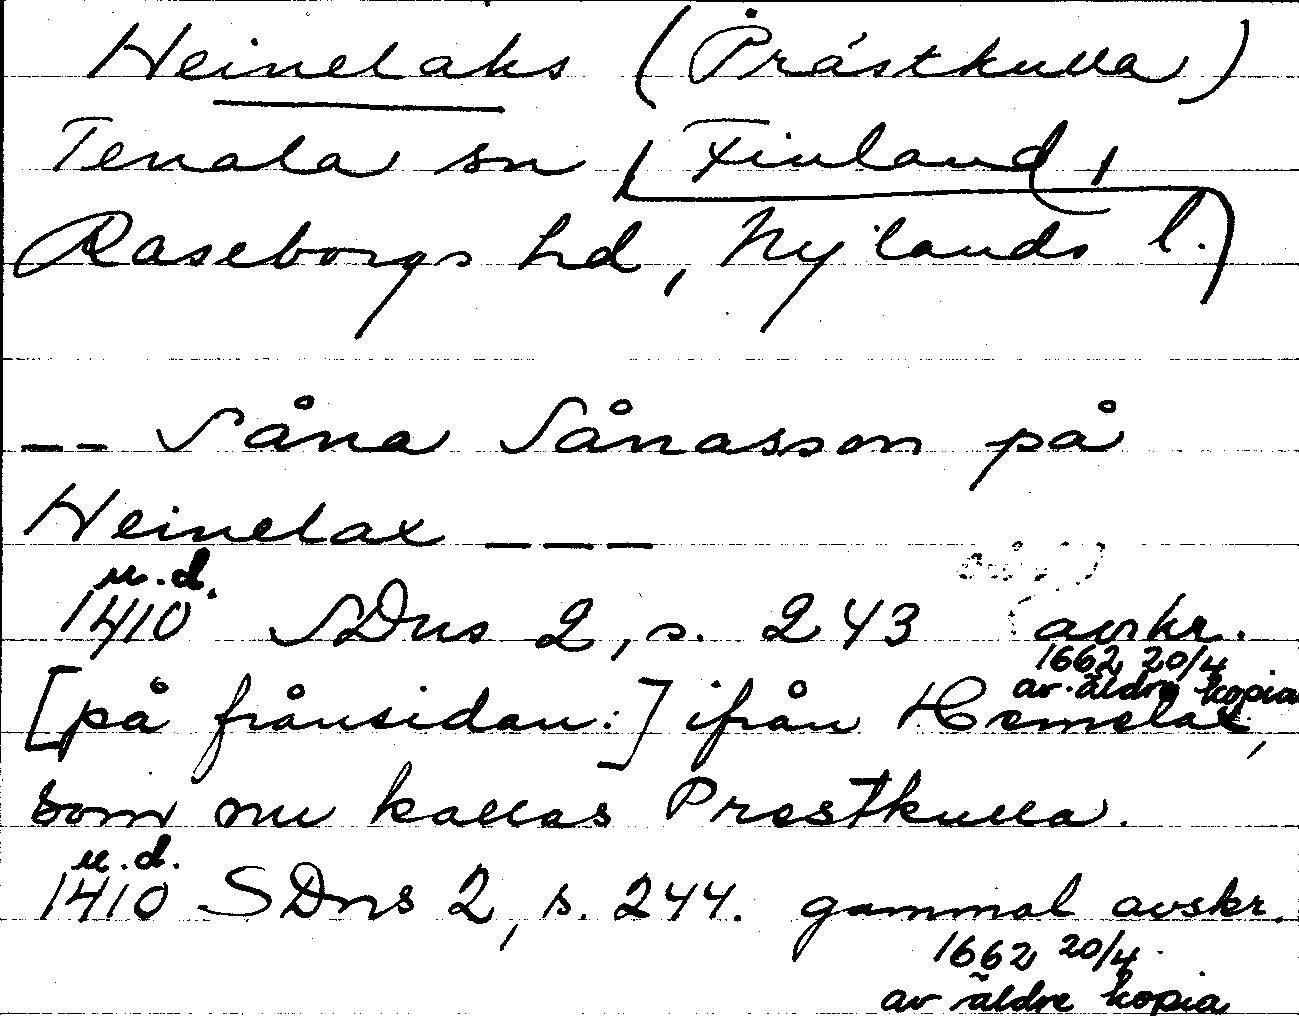 Heinelaks (Prästkulla)
Tenala sn (Finland,
Raseborgs hd, Nylands l.)
-- Såna Sånasson på
Heinelax ---
u.d.
1410 SDns 2, s. 243 avskr.
1662 20/4
av äldre kopia
[på frånsidan:] ifrån Hemelax,
som nu kallas Prestkulla.
u.d.
1410 SDns 2, s. 244. gammal avskr.
1662 20/4
av äldre kopia